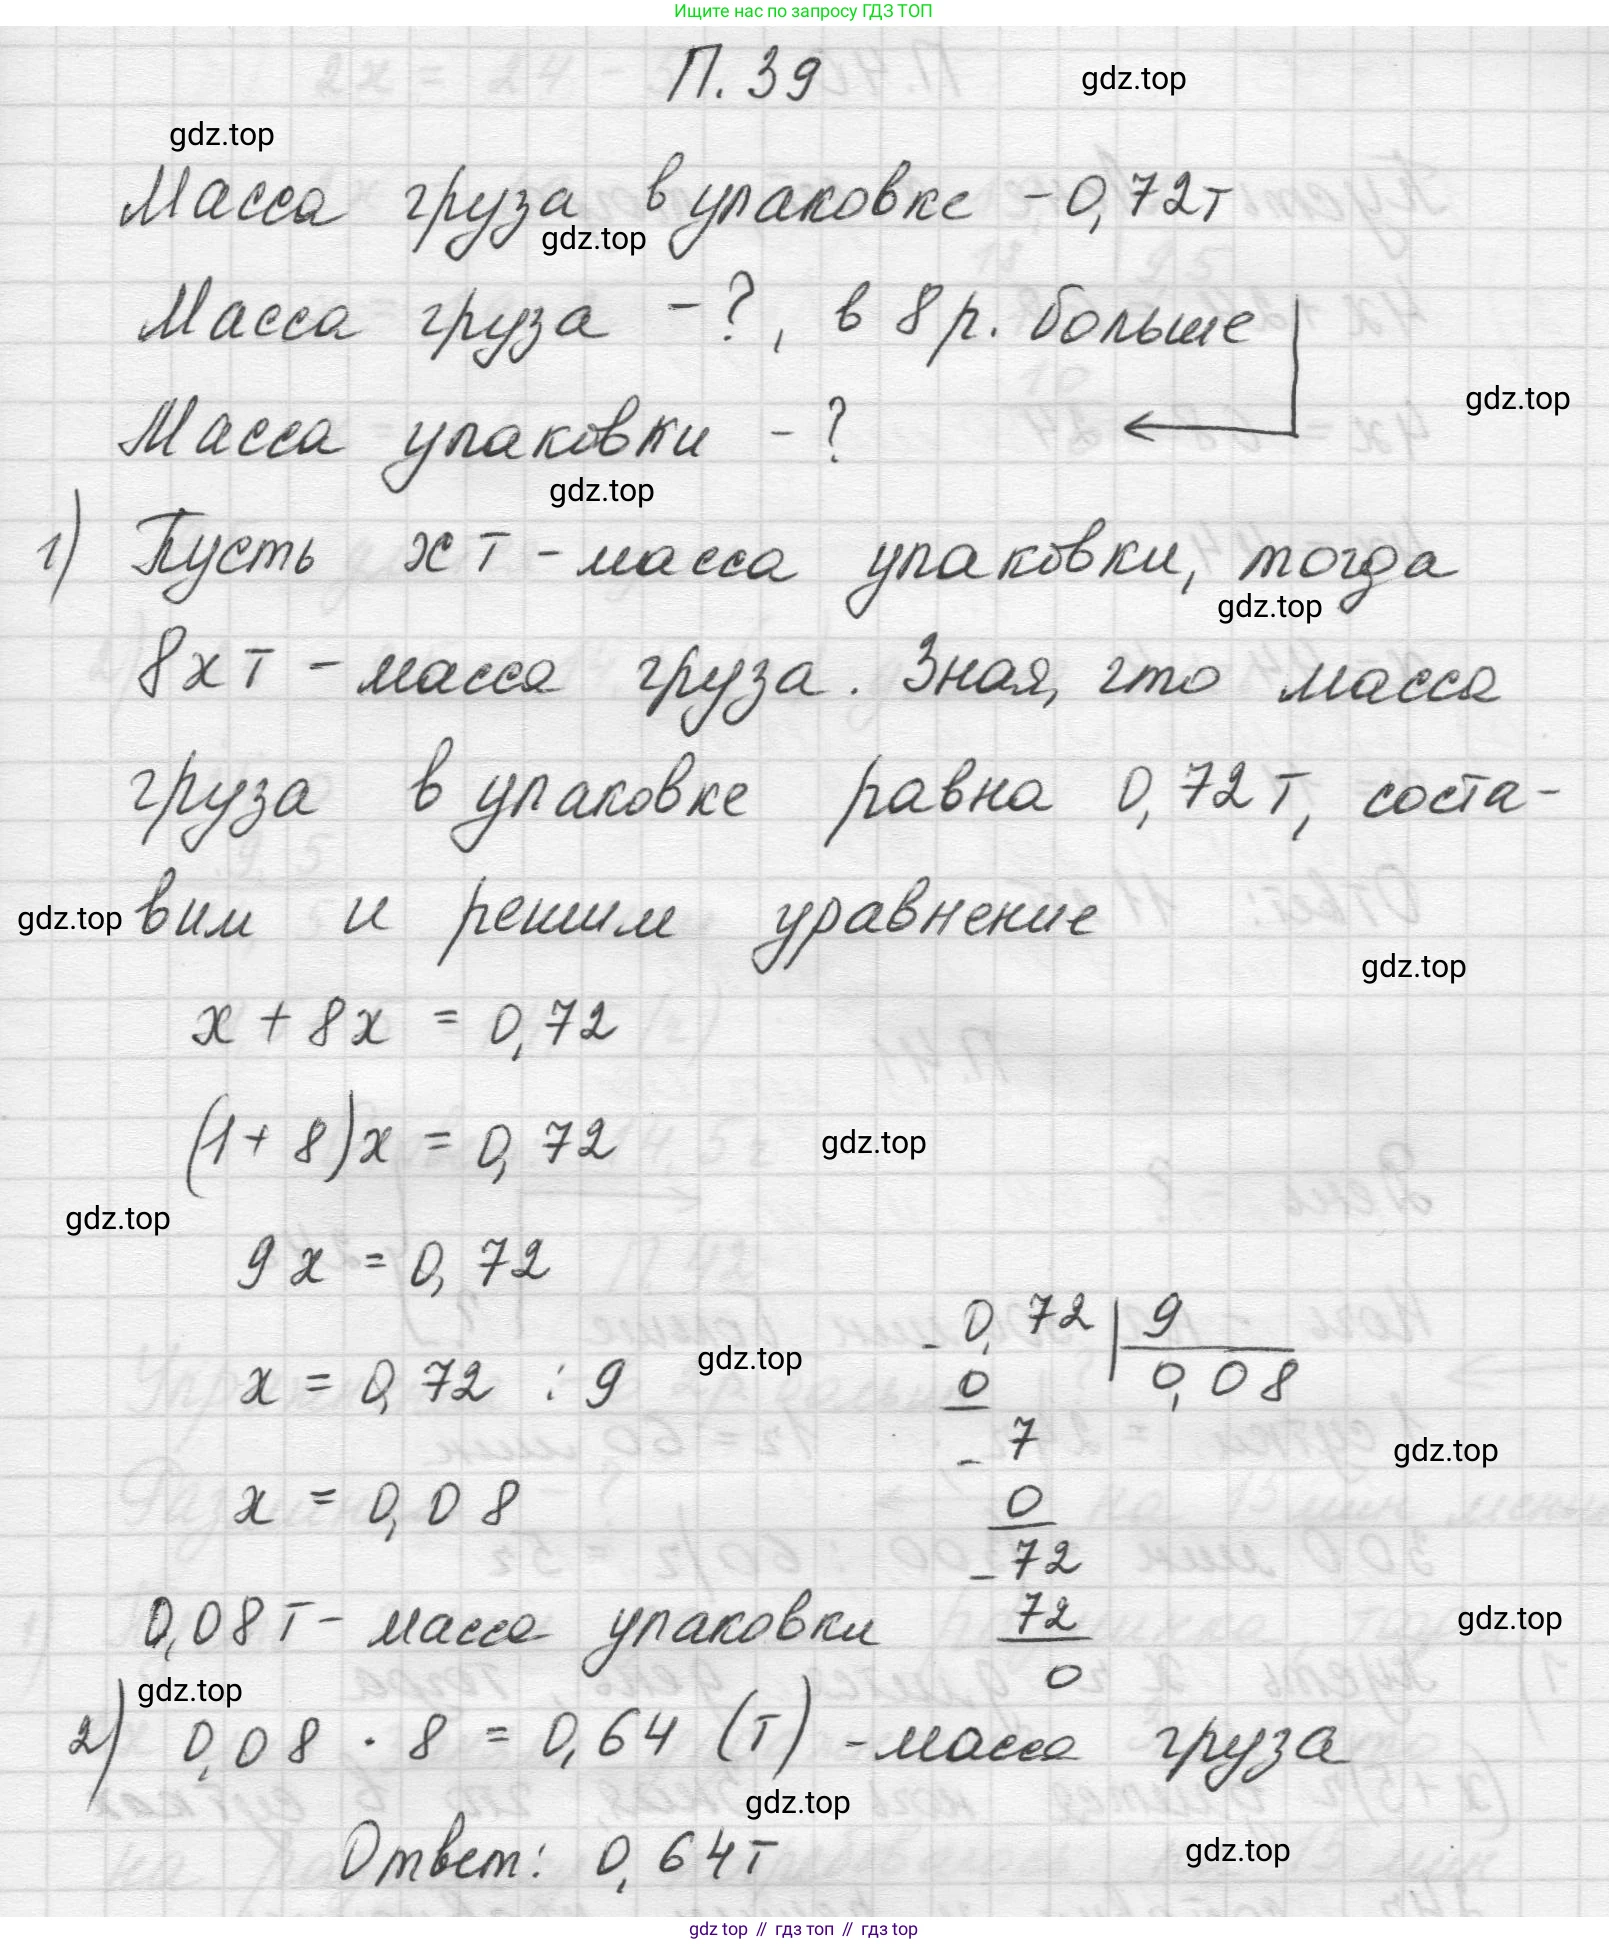 Ищите нас по запросу ГДЗ ТОП
П. 39
gdz.top
gdz.top
Масса груза в упаковке - 0,72т
gdz.top
Масса груза - ?, в 8 р. больше
gdz.top
Масса упаковки - ?
gdz.top
1) Пусть x т - масса упаковки, тогда
gdz.top
8x т - масса груза. Зная, что масса
груза в упаковке равна 0,72 т, соста-
gdz.top
вим и решим уравнение
gdz.top
x + 8x = 0,72
(1 + 8)x = 0,72
gdz.top
gdz.top
9x = 0,72
- 0,72 | 9
gdz.top
x = 0,72 : 9
0 0,08
- 7
gdz.top
x = 0,08
0
- 72
0,08 т - масса упаковки
72
gdz.top
0
gdz.top
2) 0,08 · 8 = 0,64 (т) - масса груза
gdz.top
Ответ: 0,64т
gdz.top
gdz top // гдз топ // гдз top